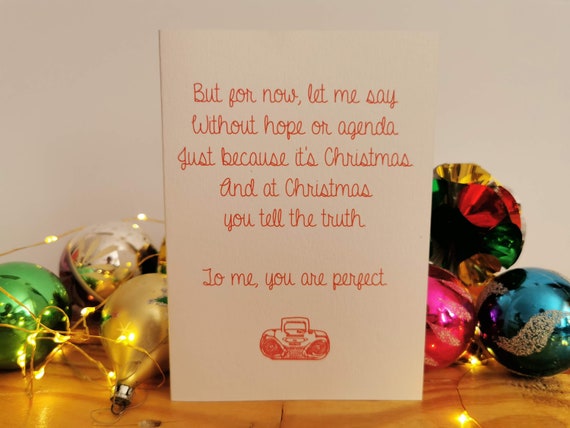 But for now, let me say
Without hope or agenda
Just because it's Christmas
And at Christmas
you tell the truth
To me, you are perfect